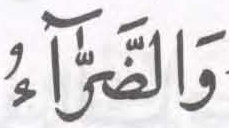 وَالضَّرَّآءُ